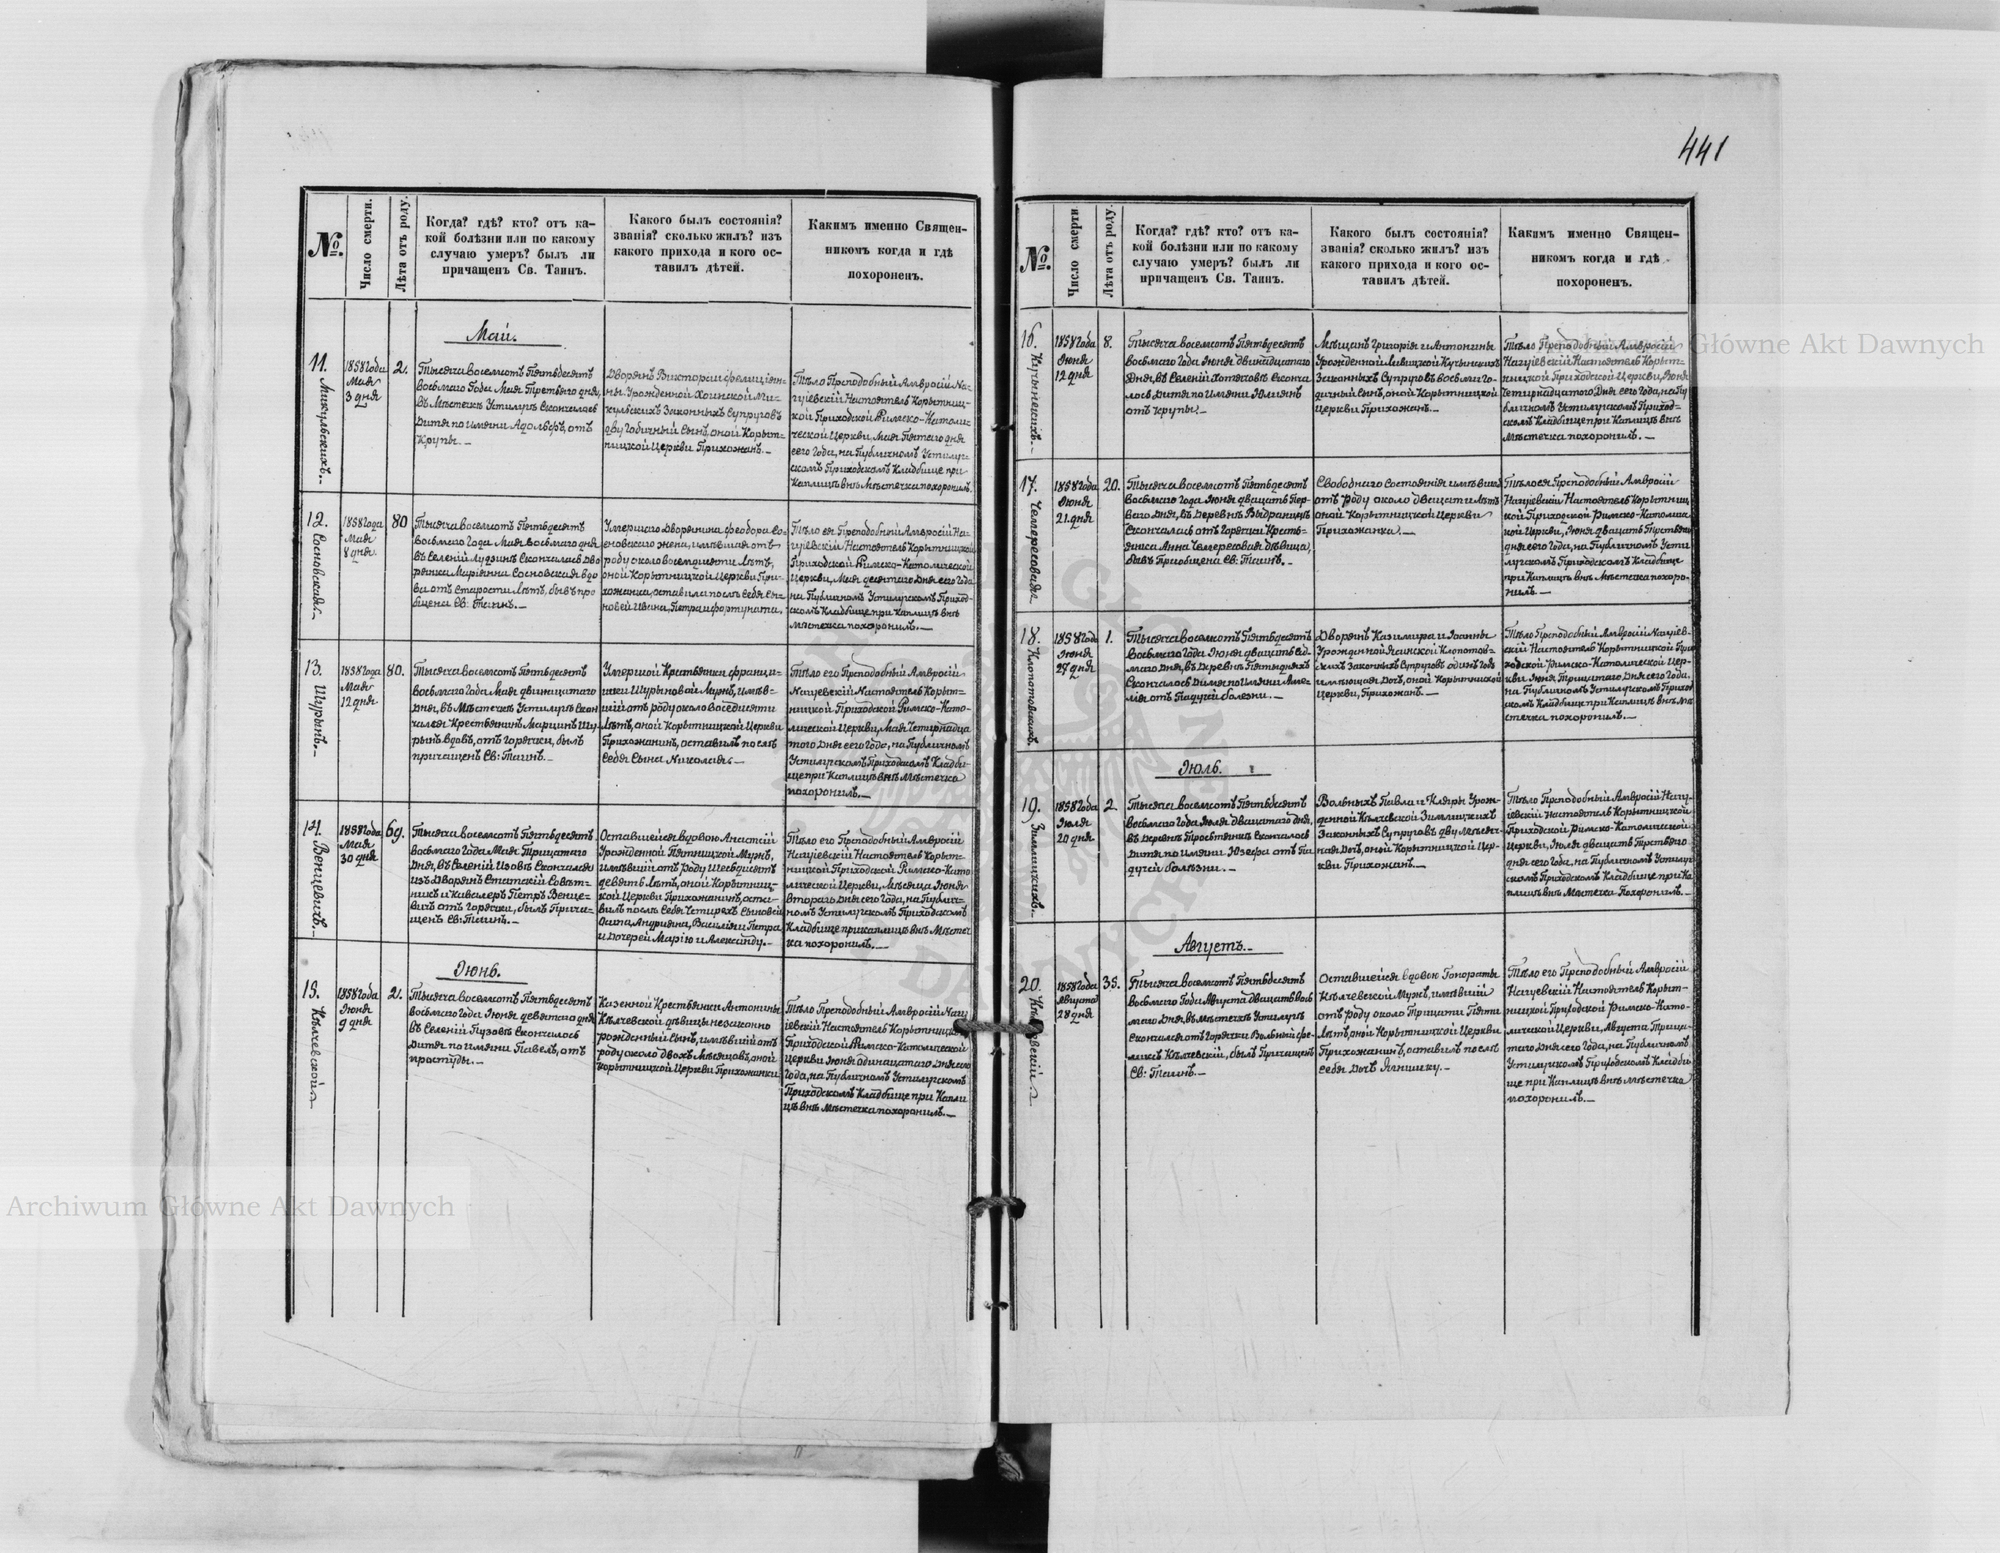 441
№.
Число смерти.
Лѣта отъ роду.
Когда? гдѣ? кто? отъ ка-
кой болѣзни или по какому
случаю умеръ? былъ ли
причащенъ Св. Таинъ.
Какого былъ состоянія?
званія? сколько жилъ? изъ
какого прихода и кого ос-
тавилъ дѣтей.
Каким именно Священ-
никомъ когда и гдѣ
похороненъ.
Май.
11.
Микульскихъ.
1858 года
Мая
3 дня
2.
Тысяча восемсотъ Пятьдесятъ
восьмаго Года Мая Третьяго дня,
въ Мѣстечкѣ Устилугѣ Скончалось
Дитя по имени Адольфъ, отъ
Крупы.—
Дворянъ Викторы Фелиціян-
ны Урожденной Хоинской Ми-
кульскихъ Законныхъ Супруговъ
двугодичный Сынъ, оной Корыт-
ницкой Церкви Прихожанъ.—
Тѣло Преподобный Амвросій На-
гуіевскій Настоятель Корытниц-
кой Приходской Римско-Католи-
ческой Церкви, Мая Пятаго дня
сего Года, на Публичномъ Устилуг-
скомъ Приходскомъ Кладбище при
Каплицѣ внѣ Мѣстечка похоронилъ.
12.
Сосновская
1858 года
Мая
8 дня.
80
Тысяча восемсотъ Пятьдесятъ
восьмаго Года Мая восьмаго дня
въ Селеніи Лудзинѣ Скончалась Дво-
рянка Маріянна Сосновская вдо-
ва отъ Старости Лѣтъ, бывъ прі-
общена Св: Таинъ.—
Умершаго Дворянина Феодора Со-
сновскаго жена, имѣвшая отъ
роду около восемдесяти Лѣтъ,
оной Корытницкой Церкви При-
хожанка, оставила послѣ Себя Сы-
новей Ивана, Петра и Фортуната,
Тѣло ея Преподобный Амвросій На-
гуіевскій Настоятель Корытницкой
Приходской Римско-Католической
Церкви, Мая десятаго Дня сего Года
на Публичномъ Устилугскомъ Приход-
скомъ Кладбище при Каплицѣ внѣ
Мѣстечка похоронилъ.—
13.
Шурынъ.
1858 года
Мая
12 дня
80.
Тысяча восемсотъ Пятьдесятъ
восьмаго Года Мая двѣнацатаго
Дня, въ Мѣстечкѣ Устилугѣ Скон-
чался Крестьянинъ Марцинъ Шу-
рынъ вдовъ, отъ Горячки, былъ
причащенъ Св: Таинъ.—
Умершой Крестьянки Франци-
шки Шурыновой Мужъ, имѣв-
шій отъ роду около восѣдисяти
Лѣтъ, оной Корытницкой Церкви
Прихожанинъ, оставилъ послѣ
Себя Сына Николая.—
Тѣло его Преподобный Амвросій
Нагуевскій Настоятель Корыт-
ницкой Приходской Римско-Като-
лической Церкви, Мая Четырнадца-
таго Дня сего Года, на Публичномъ
Устилугскомъ Приходскомъ Кладби-
ще при Каплицѣ внѣ Мѣстечка
похоронилъ.—
14.
Венцевичъ.
1858 года
Мая
30 дня
69.
Тысяча восемсотъ Пятьдесятъ
восьмаго Года Мая Трицатаго
Дня, въ Селеній Изовѣ Скончался
изъ Дворянъ Статскій Совѣт-
никъ и Кавалеръ Петръ Венце-
вичъ отъ Горячки, былъ Прича-
щенъ Св: Таинъ.—
Оставшейся вдовою Анастасіи
Урожденной Пятницкой Мужъ,
имѣвшій отъ Роду Шесьдисятъ
девять Лѣтъ, оной Корытниц-
кой Церкви Прихожанинъ, оста-
вилъ послѣ Себя Четырехъ Сыновей
Осипа, Андрияна, Василія и Петра
и Дочерей Марію и Александу.—
Тѣло его Преподобный Амвросій
Нагуіевскій Настоятель Корыт-
ницкой Приходской Римско-Като-
лической Церкви, Мѣсяца Іюня
втораго Дня сего Года, на Публич-
номъ Устилугскомъ Приходскомъ
Кладбище при Каплицѣ внѣ Мѣстеч-
ка похоронилъ.—
Іюнь.
15.
Кѣлчевской
1858 года
Іюня
9 дня
2.
Тысяча восемсотъ Пятьдесятъ
восьмаго Года Іюня девятаго дня
въ Селеній Пузовѣ Скончалось
Дитя по имени Павелъ, отъ
простуды.—
Казенной Крестьянки Антонины
Кѣлчевской дѣвицы незаконно
рожденный Сынъ, имѣвшій отъ
роду около двохъ Мѣсяцовъ, оной
Корытницкой Церкви Прихожанки
Тѣло Преподобный Амвросій Нагу-
іевскій Настоятель Корытницкой
Приходской Римско-Католической
Церкви Іюня одинацатаго Дня сего
Года, на Публичномъ Устилугскомъ
Приходскомъ Кладбище при Капли-
цѣ внѣ Мѣстечка похоронилъ.—
№.
Число смерти.
Лѣта отъ роду.
Когда? гдѣ? кто? отъ ка-
кой болѣзни или по какому
случаю умеръ? былъ ли
причащенъ Св. Таинъ.
Какого былъ состоянія?
званія? сколько жилъ? изъ
какого прихода и кого ос-
тавилъ дѣтей.
Какимъ именно Священ-
никомъ когда и гдѣ
похороненъ.
16.
1858 года
Іюня
12 дня
8.
Тысяча восемсотъ Пятьдесятъ
восьмаго Года Іюня двѣнадцатаго
Дня, въ Селеній Хотячовѣ Сконча-
лось Дитя по Имени Юліянъ
отъ крупы.—
Мѣщанъ Григорія и Антонины
Урожденной Ливицкой
Законныхъ Супруговъ восьмиго-
дичный Сынъ, оной Корытницкой
Церкви Прихожанъ.—
Тѣло Преподобный Амвросій
Нагуіевскій Настоятель Корыт-
ницкой Приходской Церкви, Іюня
Четырнадцатаго Дня сего Года, на Пу-
бличномъ Устилугскомъ Приход-
скомъ Кладбище при Каплицѣ внѣ
Мѣстечка похоронилъ.—
17.
Чемересовая
1858 года
Іюня
21. дня
20.
Тысяча восемсотъ Пятьдесятъ
восьмаго Года Іюня двацать Пер-
ваго Дня, въ Деревнѣ Выдраницѣ
Скончалась отъ Горячки Кресть-
янка Анна Чемересовая дѣвица,
бывъ Пріобщена Св: Таинъ.—
Свободнаго Состоянія имѣвшая
отъ Роду около двацати Лѣтъ
оной Корытницкой Церкви
Прихожанка.—
Тѣло ея Преподобный Амвросій
Нагуіевскій Настоятель Корытниц-
кой Приходской Римско-Католичес-
кой Церкви, Іюня двацать Третьяго
дня сего Года, на Публичномъ Усти-
лугскомъ Приходскомъ Кладбище
при Каплицѣ внѣ Мѣстечка похоро-
нилъ.—
18.
Клопотовскихъ
1858 года
Іюня
27 дня
1.
Тысяча восемсотъ Пятьдесятъ
восьмаго Года Іюня двацать сѣд-
маго Дня, въ Деревнѣ Пятыдняхъ
Скончалось Дитя по Имени Аме-
лія отъ Падучей болѣзни.—
Дворянъ Казимира и Іоанны
Урожденной Ясинской Клопотов-
скихъ Законныхъ Супруговъ одинъ Годъ
имѣющая Дочъ, оной Корытницкой
Церкви, Прихожанъ.—
Тѣло Преподобный Амвросій Нагуіев-
скій Настоятель Корытницкой При-
ходской Римско-Католической Цер-
кви Іюня Трицатаго Дня сего Года,
на Публичномъ Устилугскомъ Приход-
скомъ Кладбище при Каплицѣ внѣ Мѣ-
стечка похоронилъ.—
Іюль.
19.
Зимлицкихъ.
1858 года
Іюля
20 дня
2.
Тысяча восемсотъ Пятьдесятъ
восьмаго Года Іюля двацатаго дня,
въ Деревнѣ Тростянкѣ Скончалось
Дитя по имени Юзефа отъ Па-
дучей болѣзни.—
Вольныхъ Павла и Кляры Урож-
денной Кѣлчевской Зимлицкихъ
Законныхъ Супруговъ двумѣсяч-
ная Дочъ, оной Корытницкой Цер-
кви Прихожанъ.—
Тѣло Преподобный Амвросій Нагу-
іевскій Настоятель Корытницкой
Приходской Римско-Католической
Церкви, Іюля двацать Третьяго
дня сего Года, на Публичномъ Устилуг-
скомъ Приходскомъ Кладбище при Ка-
плицѣ внѣ Мѣстечка Похоронилъ.—
Августъ.—
20.
1858 года
Августа
28 дня
35.
Тысяча восемсотъ Пятьдесятъ
восьмаго Года Августа двацать вось-
маго Дня, въ Мѣстечкѣ Устилугѣ
Скончался отъ Горячки Вольный Фе-
ликсъ Кѣлчевскій, былъ Причащенъ
Св: Таинъ.—
Оставшейся вдовою Гонораты
Кѣлчевской Мужъ, имѣвшій
отъ роду около Трицати Пяти
Лѣтъ, оной Корытницкой Церкви
Прихожанинъ, оставилъ послѣ
Себя Дочъ Ягнишку.—
Тѣло его Преподобный Амвросій
Нагуевскій Настоятель Корыт-
ницкой Приходской Римско-Като-
лической Церкви, Августа Трица-
таго Дня сего Года, на Публичномъ
Устилугскомъ Приходскомъ Кладби-
ще при Каплицѣ внѣ Мѣстечка
похоронилъ.—
Archiwum Główne Akt Dawnych
Archiwum Główne Akt Dawnych